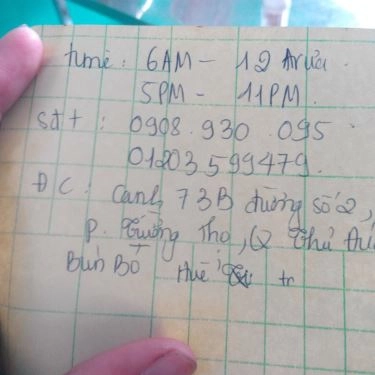 time: 6AM - 12 trưa.
5PM - 11PM.
sđt: 0908.930.095
01203599479.
ĐC: Cạnh 73B đường số 2,
P. Trường Thọ, Q Thủ Đức
Bún Bò Huế